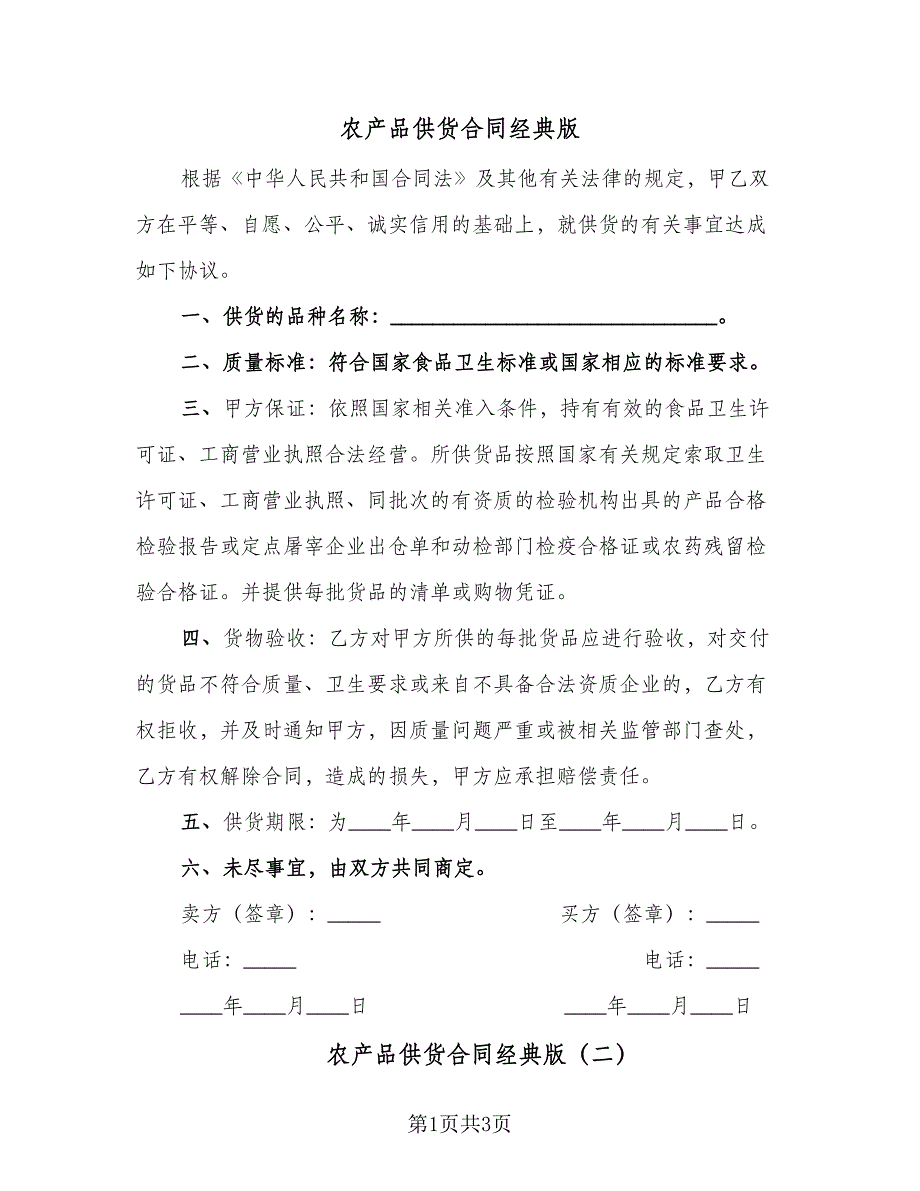 农产品供货合同经典版
根据《中华人民共和国合同法》及其他有关法律的规定，甲乙双
方在平等、自愿、公平、诚实信用的基础上，就供货的有关事宜达成
如下协议。
一、供货的品种名称：_______________________________。
二、质量标准：符合国家食品卫生标准或国家相应的标准要求。
三、甲方保证：依照国家相关准入条件，持有有效的食品卫生许
可证、工商营业执照合法经营。所供货品按照国家有关规定索取卫生
许可证、工商营业执照、同批次的有资质的检验机构出具的产品合格
检验报告或定点屠宰企业出仓单和动检部门检疫合格证或农药残留检
验合格证。并提供每批货品的清单或购物凭证。
四、货物验收：乙方对甲方所供的每批货品应进行验收，对交付
的货品不符合质量、卫生要求或来自不具备合法资质企业的，乙方有
权拒收，并及时通知甲方，因质量问题严重或被相关监管部门查处，
乙方有权解除合同，造成的损失，甲方应承担赔偿责任。
五、供货期限：为____年____月____日至____年____月____日。
六、未尽事宜，由双方共同商定。
卖方（签章）：_____ 买方（签章）：_____
电话：_____ 电话：_____
____年____月____日 ____年____月____日
农产品供货合同经典版（二）
第1页共3页